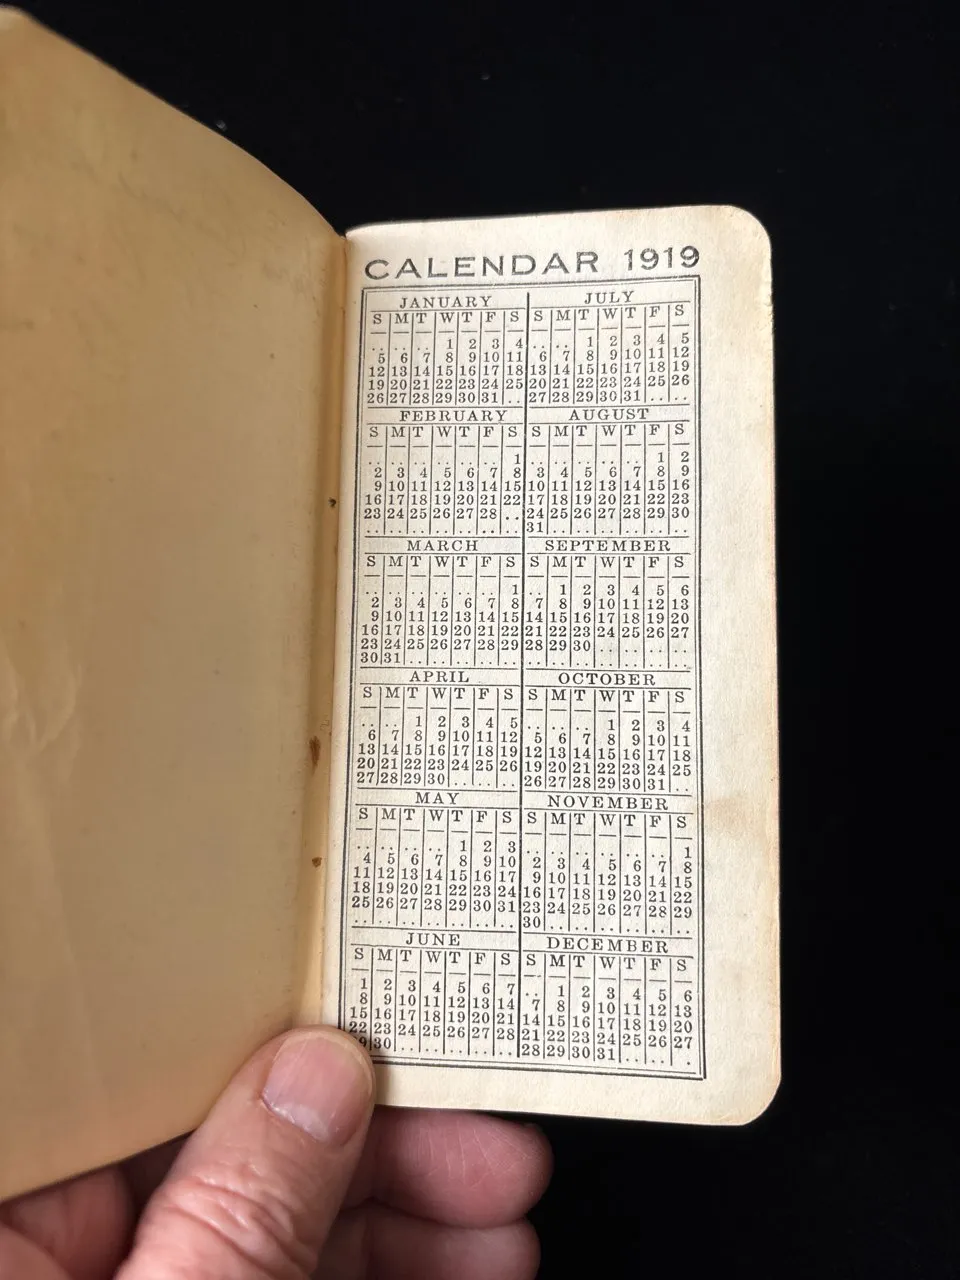 CALENDAR 1919
JANUARY
S M T W T F S
.. .. .. 1 2 3 4
5 6 7 8 9 10 11
12 13 14 15 16 17 18
19 20 21 22 23 24 25
26 27 28 29 30 31 ..
FEBRUARY
S M T W T F S
.. .. .. .. .. .. 1
2 3 4 5 6 7 8
9 10 11 12 13 14 15
16 17 18 19 20 21 22
23 24 25 26 27 28 ..
.. .. .. .. .. .. ..
MARCH
S M T W T F S
.. .. .. .. .. .. 1
2 3 4 5 6 7 8
9 10 11 12 13 14 15
16 17 18 19 20 21 22
23 24 25 26 27 28 29
30 31 .. .. .. .. ..
APRIL
S M T W T F S
.. .. 1 2 3 4 5
6 7 8 9 10 11 12
13 14 15 16 17 18 19
20 21 22 23 24 25 26
27 28 29 30 .. .. ..
MAY
S M T W T F S
.. .. .. .. 1 2 3
4 5 6 7 8 9 10
11 12 13 14 15 16 17
18 19 20 21 22 23 24
25 26 27 28 29 30 31
.. .. .. .. .. .. ..
JUNE
S M T W T F S
1 2 3 4 5 6 7
8 9 10 11 12 13 14
15 16 17 18 19 20 21
22 23 24 25 26 27 28
29 30 .. .. .. .. ..
JULY
S M T W T F S
.. .. 1 2 3 4 5
6 7 8 9 10 11 12
13 14 15 16 17 18 19
20 21 22 23 24 25 26
27 28 29 30 31 .. ..
AUGUST
S M T W T F S
.. .. .. .. .. 1 2
3 4 5 6 7 8 9
10 11 12 13 14 15 16
17 18 19 20 21 22 23
24 25 26 27 28 29 30
31 .. .. .. .. .. ..
SEPTEMBER
S M T W T F S
.. 1 2 3 4 5 6
7 8 9 10 11 12 13
14 15 16 17 18 19 20
21 22 23 24 25 26 27
28 29 30 .. .. .. ..
.. .. .. .. .. .. ..
OCTOBER
S M T W T F S
.. .. .. 1 2 3 4
5 6 7 8 9 10 11
12 13 14 15 16 17 18
19 20 21 22 23 24 25
26 27 28 29 30 31 ..
NOVEMBER
S M T W T F S
.. .. .. .. .. .. 1
2 3 4 5 6 7 8
9 10 11 12 13 14 15
16 17 18 19 20 21 22
23 24 25 26 27 28 29
30 .. .. .. .. .. ..
DECEMBER
S M T W T F S
.. 1 2 3 4 5 6
7 8 9 10 11 12 13
14 15 16 17 18 19 20
21 22 23 24 25 26 27
28 29 30 31 .. .. ..